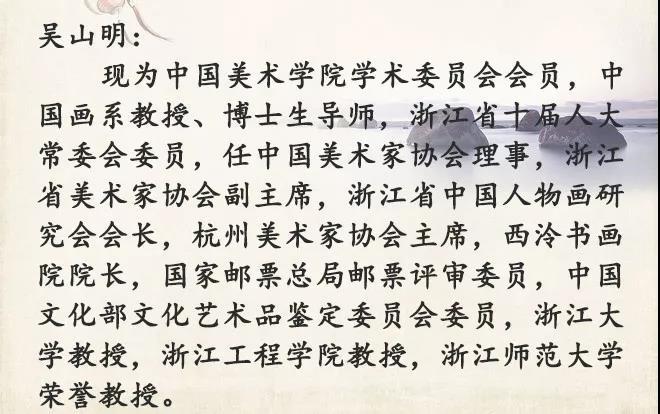 吴山明：
现为中国美术学院学术委员会会员，中
国画系教授、博士生导师，浙江省十届人大
常委会委员，任中国美术家协会理事，浙江
省美术家协会副主席，浙江省中国人物画研
究会会长，杭州美术家协会主席，西泠书画
院院长，国家邮票总局邮票评审委员，中国
文化部文化艺术品鉴定委员会委员，浙江大
学教授，浙江工程学院教授，浙江师范大学
荣誉教授。